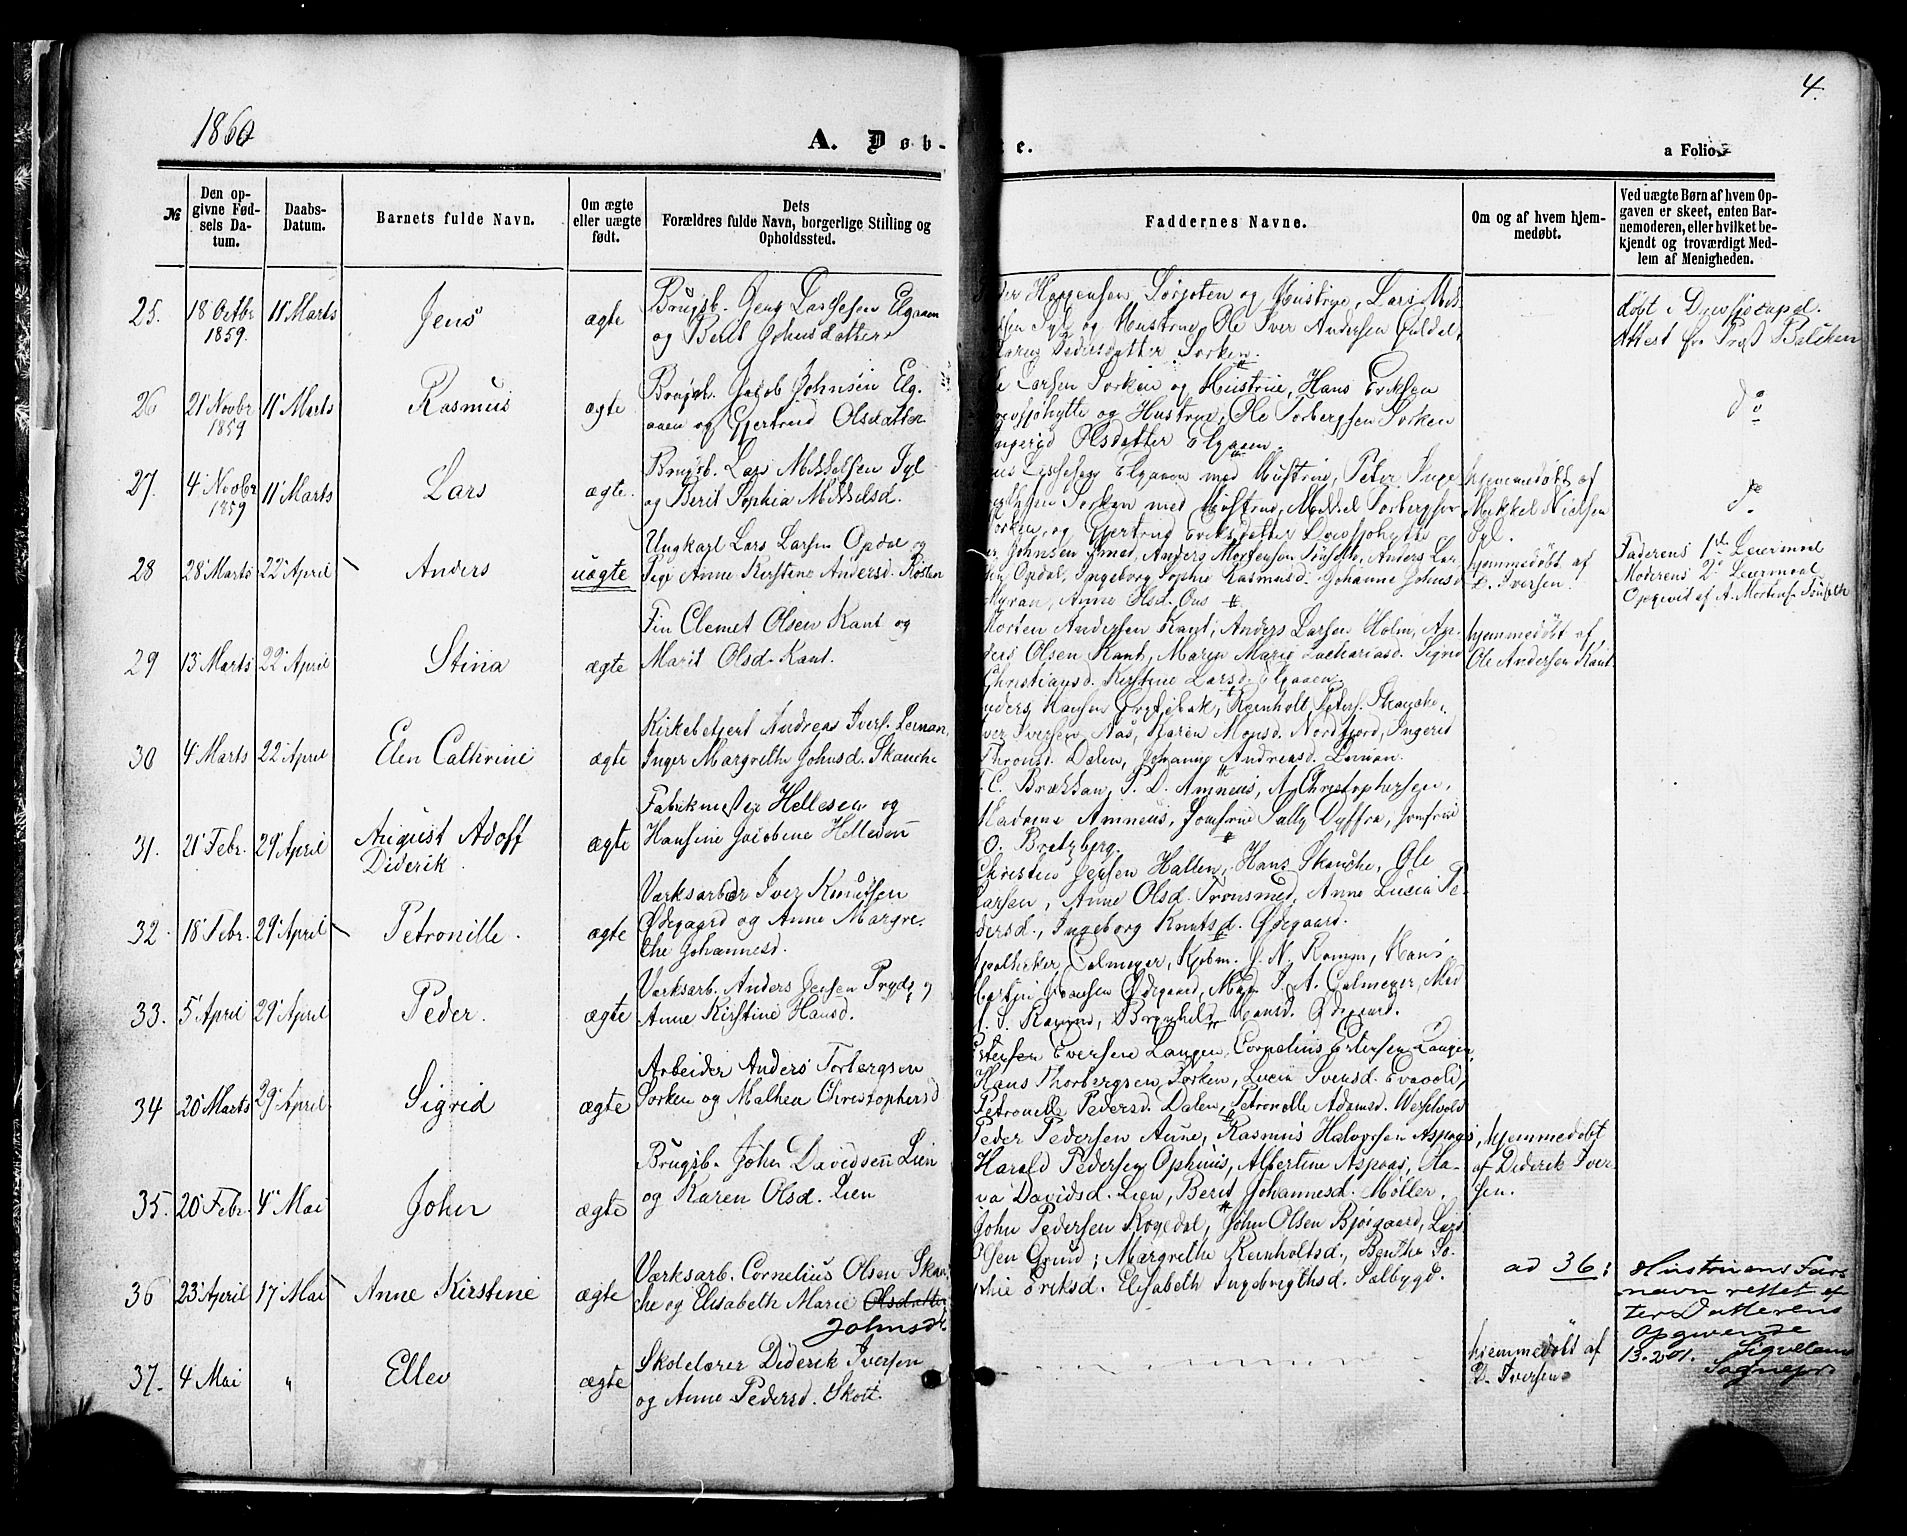 4.
1860
A. Døb-
te.
a Folio
№
Den op-
givne Fød-
sels Da-
tum.
Daabs-
Datum.
Barnets fulde Navn.
Om ægte
eller uægte
født.
Dets
Forældres fulde Navn, borgerlige Stilling og
Opholdssted.
Faddernes Navne.
Om og af hvem hjem-
medøbt.
Ved uægte Børn af hvem Op-
gaven er skeet, enten Bar-
nemoderen, eller hvilket be-
kjendt og troværdigt Med-
lem af Menigheden.
25. 18 Octbr 1859. 11 Marts Jens ægte
Brugsb. Jens Elgaaen
og Berit Johnsdatter
Sorken og Hustrue, Lars
og Hustrue, Ole Iver Andersen
Pedersdatter Sorken.
døbt i
Attest fra
26 21 Novbr 1859 11 Marts Rasmus ægte
Brugsb. Jacob Johnsen Elg-
aaen og Gjertrud Olsdatter
Larsen Sorken og Hustrue, Hans Eriksen
og Hustrue, Ole Torbergsen Sorken
Olsdatter Elgaaen.
do
27. 4 Novbr 1859 11 Marts Lars ægte.
Brugsb. Lars Mikkelsen Syl
og Berit Sophia Mikkelsd.
Elgaaen med Hustrue, Peter
Sorken med Hustrue, Mikkel Torbergsen
Sorken, og Gjertrud Eriksdatter
hjemmedøbt af
Mikkel Nielsen
Syl.
do
28 28 Marts 22 April Anders uægte
Ungkarl Lars Larsen Opdal og
Pige Anne Kirstine Andersd.
Johnsen Smed, Anders Mortensen Anders Lar-
sen Opdal, Ingeborg Sophie Rasmusd. Johanne Johnsd.
Myran, Anne Olsd. Aas
hjemmedøbt af
D. Iversen.
Faderens 1ste Leiermaal
Moderens 2d Leiermaal
Opgivet af A. Mortensen
29 13 Marts 22 April Stina ægte
Fin Clemet Olsen Kant og
Marit Olsd. Kant.
Morten Andersen Kant, Anders Larsen Holm, An-
ders Olsen Kant, Maren Marie Zachariasd. Sigrid
Christiansd. Kirstine Larsd. Elgaaen
hjemmedøbt af
Ole Andersen Kant
30 4 Marts 22 April Elen Cathrine ægte
Kirkebetjent Andreas Ivers. Leinan,
Inger Margrethe Johnsd. Skanche
Anders Hansen Reinholt Peters. Skanche,
Iver Iversen Aas, Karen Monsd. Nordfjord, Ingerid
Thronsd. Dalen, Johanne Andreasd. Leinan.
31. 21 Febr. 29 April August Adolf
Diderik. ægte
Fabrikmester Hellesen og
Hansine Jacobine Hellesen
C. Brækkan, P. D. Amneus, A. Christophersen,
Madame Amneus, Jomfrue Sally Dyffra, Jomfrue
O. Bratzberg.
32. 18 Febr. 29 April Petronille. ægte
Værksarbeider Iver Knudsen
Ødegaard og Anne Margre-
the Johannesd.
Christen Jensen Hallen, Hans Skanche, Ole
Larsen, Anne Olsd. Tronsmed, Anne Lucia Pe-
dersd., Ingeborg Knutsd. Ødegaard.
33. 5 April 29 April Peder. ægte
Værksarb. Anders Jensen Pryds og
Anne Kirstine Hansd.
Apotheker Calmeyer, Kjøbm. J. N. Hans
Martin Hansen Ødegaard, Mad. J. A. Calmeyer, Mad
Hansd. Ødegaard.
34 20 Marts 29 April Sigrid ægte
Arbeider Anders Torbergsen
Sorken og Malhea Christophersd
Petersen Iversen Langen, Cornelius Petersen Langen,
Hans Thorbergsen Sorken, Lucia Svensd. Evavold,
Petronelle Pedersd. Dalen, Petronelle Adamsd. Wesselvold
35. 20 Febr. 4 Mai John ægte
Brugsb. John Davidsen Lien
og Karen Olsd. Lien
Peder Pedersen Aune, Rasmus Halvorsen Aspaas,
Harald Pedersen Ophuus, Albertine Aspaas, Ma-
Davidsd. Lien, Berit Johannesd. Møller.
hjemmedøbt
af Diderik Iver-
sen.
36 23 April 17 Mai Anne Kirstine ægte
Værksarb. Cornelius Olsen Skan-
che og Elisabeth Marie Olsdatter
Johnsdr.
John Pedersen Kojedal, John Olsen Bjørgaard, Lars
Olsen Grind, Margrethe Reinholtsd., Benthe So-
phie Eriksd. Elisabeth Ingebrigthsd. Galbygd.
ad 36:
Hustruens Fars
navn rettet ef-
ter Datterens
Opgivende
13.2.01.
37. 4 Mai " Ellev ægte
Skolelærer Diderik Iversen
og Anne Pedersd. Skott.
hjemmedøbt af
D. Iversen